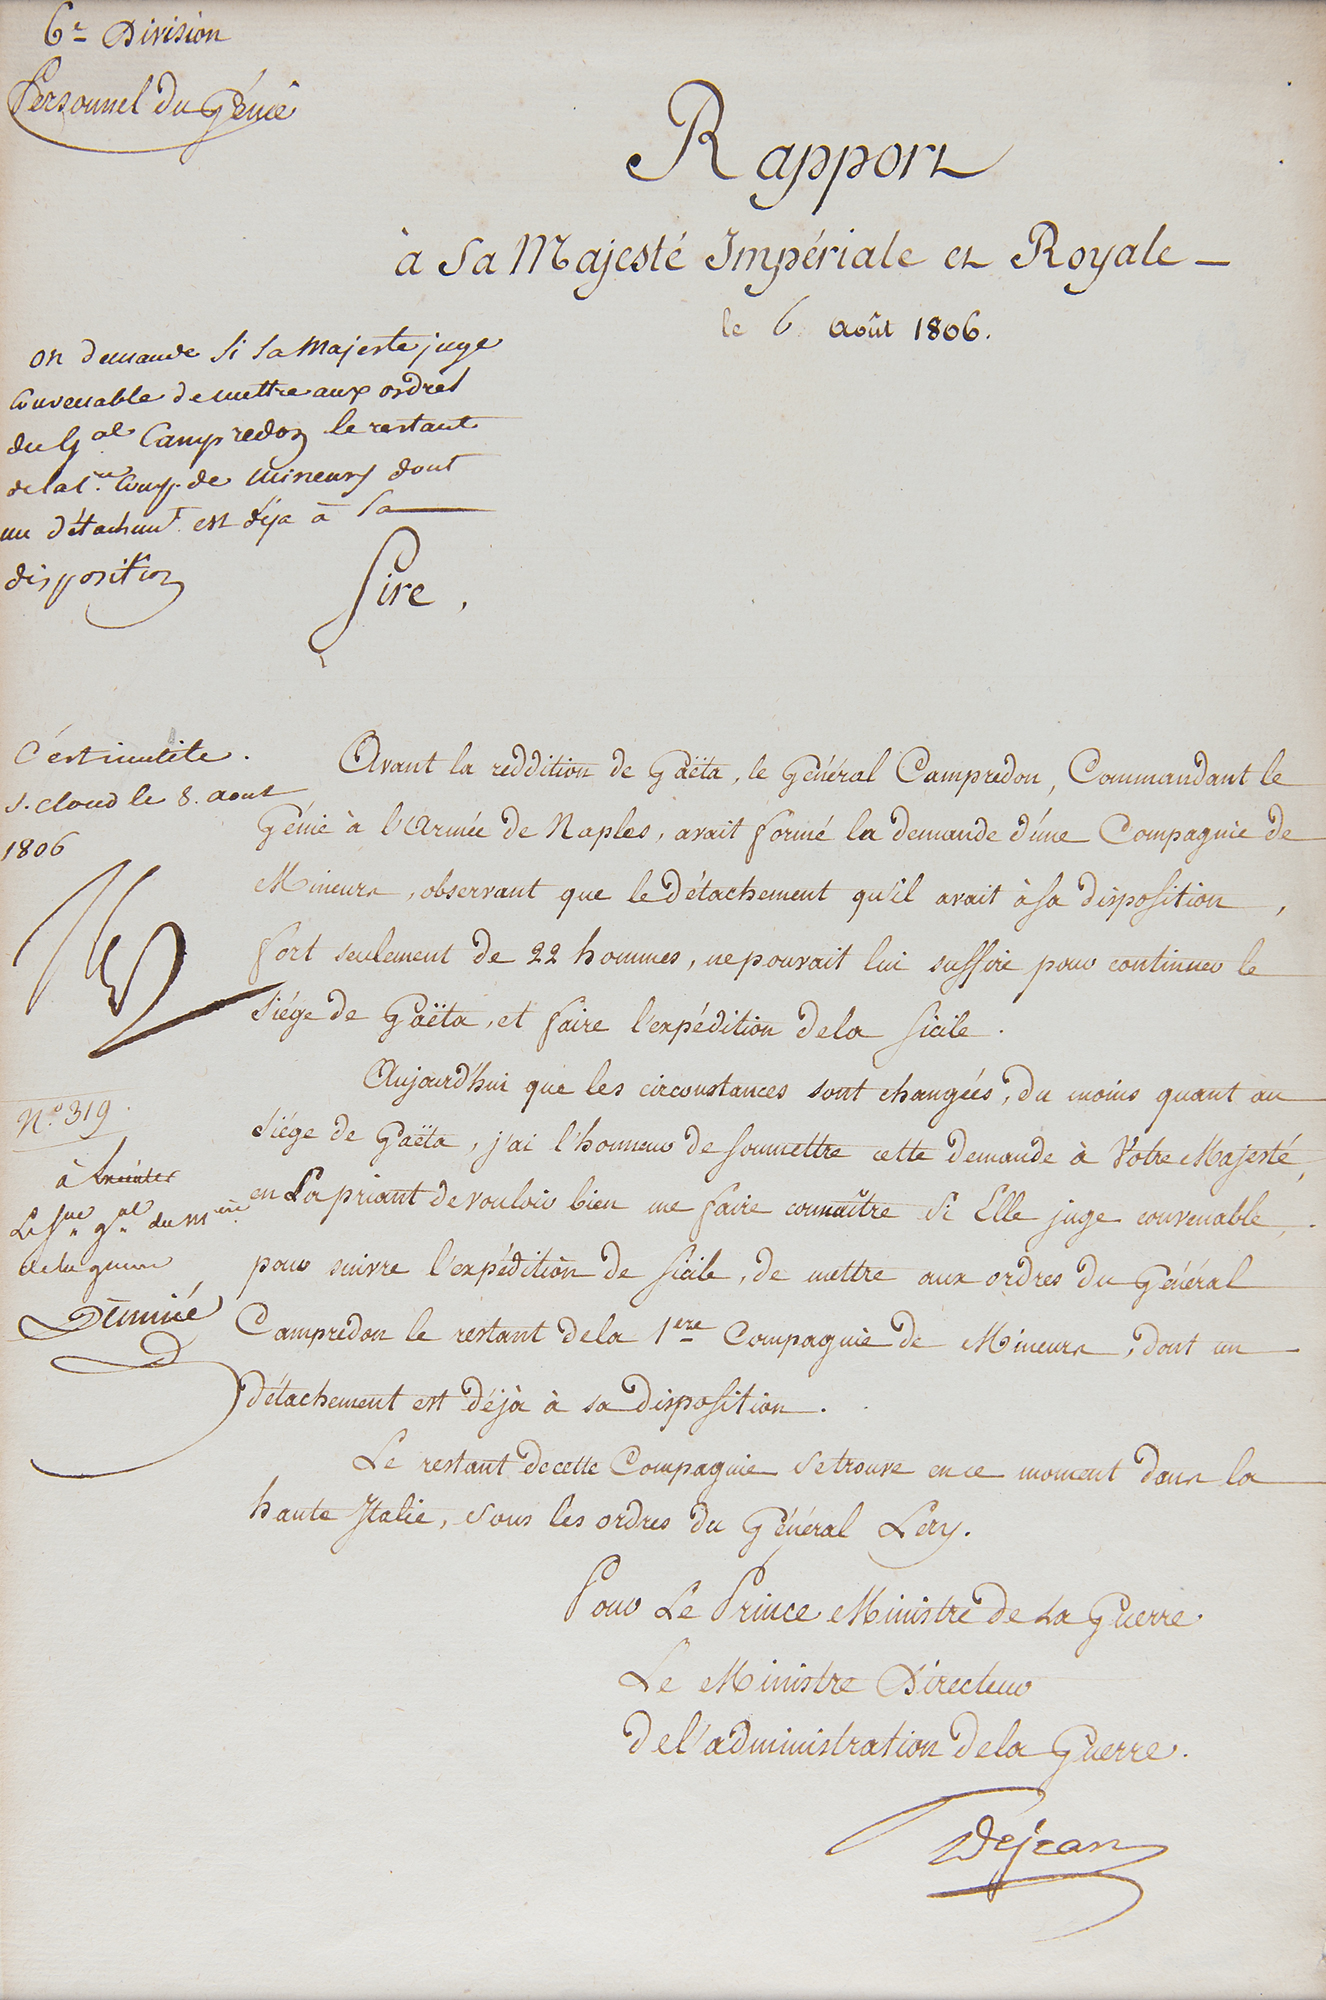 6e Division
Personnel du Génie
Rapport
à Sa Majesté Impériale et Royale
le 6 Août 1806.
on demande si sa Majesté juge
convenable de mettre aux ordres
du Gal Campredon le restant
de la 1re Comp. de Mineurs dont
un détachmt est déja à sa
disposition
Sire,
C'est inutile.
S. Cloud le 8. aout
1806
N
N.o 319
à
Le general du mere
de la guerre
Denniée
Avant la reddition de Gaëta, le Général Campredon, Commandant le
Génie à l'Armée de Naples, avait formé la demande d'une Compagnie de
Mineurs, observant que le détachement qu'il avait à sa disposition,
fort seulement de 22 hommes, ne pouvait lui suffire pour continuer le
siége de Gaëta, et faire l'expédition de la Sicile.
Aujourd'hui que les circonstances sont changées, du moins quant au
siége de Gaëta, j'ai l'honneur de soumettre cette demande à Votre Majesté,
en La priant de vouloir bien me faire connaître si Elle juge convenable,
pour suivre l'expédition de Sicile, de mettre aux ordres du Général
Campredon le restant de la 1ere Compagnie de Mineurs, dont un
détachement est déjà à sa disposition.
Le restant de cette Compagnie se trouve en ce moment dans la
haute Italie, sous les ordres du Général Lery.
Pour Le Prince Ministre de La Guerre.
Le Ministre Directeur
de l'administration de la Guerre.
Dejean